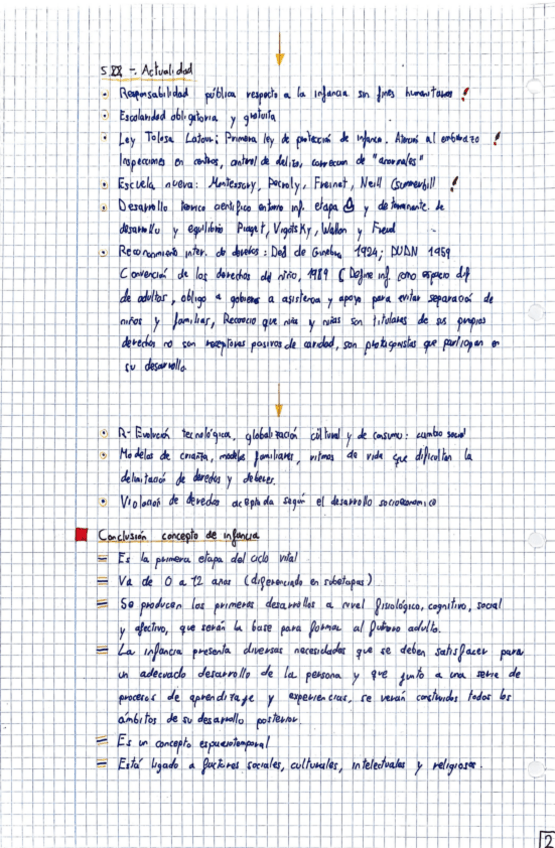 S.XX -. Actualidad
Responsabilidad pública respecto a la infancia sin fines humanitarios !
Escolaridad obligatoria y gratuita
Ley Tolosa Latour; Primera ley de protección de infanc. Atención al embarazo !
Inspecciones en centros, control de delitos, corrección de "anormales"
Escuela nueva: Montessory, Decroly, Freinet, Neill (Summerhill !
Desarrollo teórico científico entorno inf. etapa y determinante de
desarrollo y equilibrio Piaget, Vigotsky, Wallon y Freud
Reconocimiento inter. de derechos: Decl de Ginebra 1924; DUDN 1959
Convención de los derechos del niño, 1989 ( Define inf. como espacio dif
de adultos, obliga a gobiernos a asistencia y apoyo para evitar separación de
niños y familias, Reconoció que niños y niñas son titulares de sus propios
derechos no son receptores pasivos de caridad, son protagonistas que participan en
su desarrollo
R-Evolución tecnológica, globalización cultural y de consumo: cambio social
Modelos de crianza, modelos familiares, ritmos de vida que dificultan la
delimitación de derechos y deberes.
Violación de derechos aceptada según el desarrollo socioeconomico
Conclusión concepto de infancia
Es la primera etapa del ciclo vital
Va de 0 a 12 años (diferenciado en subetapas)
Se producen los primeros desarrollos a nivel fisiológico, cognitivo, social
y afectivo, que serán la base para formar al futuro adulto.
La infancia presenta diversas necesidades que se deben satisfacer para
un adecuado desarrollo de la persona y que junto a una serie de
procesos de aprendizaje y experiencias, se verán construidos todos los
ámbitos de su desarrollo posterior
Es un concepto espaciotemporal
Está ligado a factores sociales, culturales, intelectuales y religiosos.
2